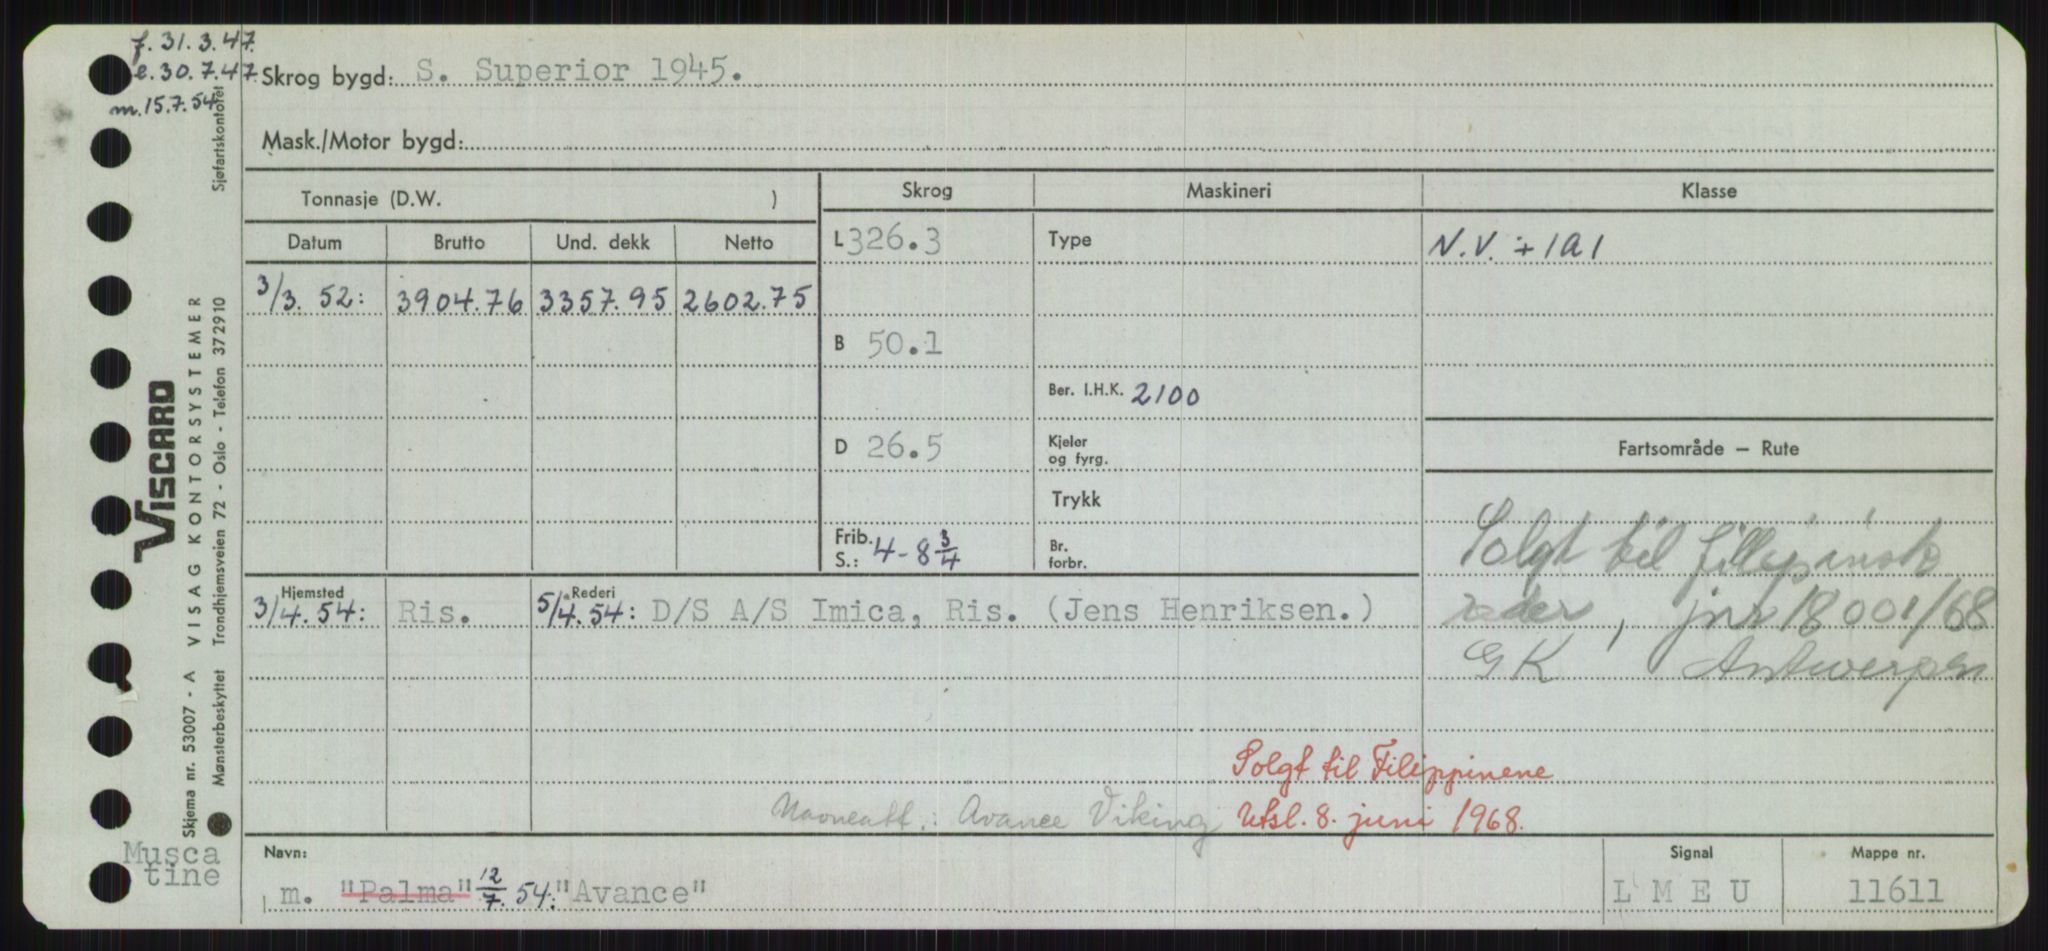 f. 31.3.47.
e. 30.7.47.
m. 15.7.54
Skrog bygd: S. Superior 1945.
Mask./Motor bygd:
Tonnasje (D.W. )
Skrog Maskineri Klasse
Datum Brutto Und. dekk Netto
L 326.3 Type N.V. + 1A1
3/3. 52: 3904.76 3357.95 2602.75
B 50.1
Ber. I.H.K. 2100
D 26.5 Kjeler og fyrg.
Fartsområde — Rute
Trykk
Frib. S.: 4-8 3/4 Br. forbr.
Solgt til filipinsk
reder, jnr 18001/68
GK Antwerpen
Hjemsted Rederi
3/4. 54: Ris. 5/4. 54: D/S A/S Imica, Ris. (Jens Henriksen.)
Solgt til Filippinene
Navneatt.: Avance Viking Utsl. 8. juni 1968.
Navn: Signal Mappe nr.
m. "Palma" 12/7. 54: "Avance" L M E U 11611
Musca
tine
VISCARD
Skjema nr. 53007 - A VISAG KONTORSYSTEMER
Mønsterbeskyttet Trondhjemsveien 72 - Oslo - Telefon 372910 Sjøfartskontoret